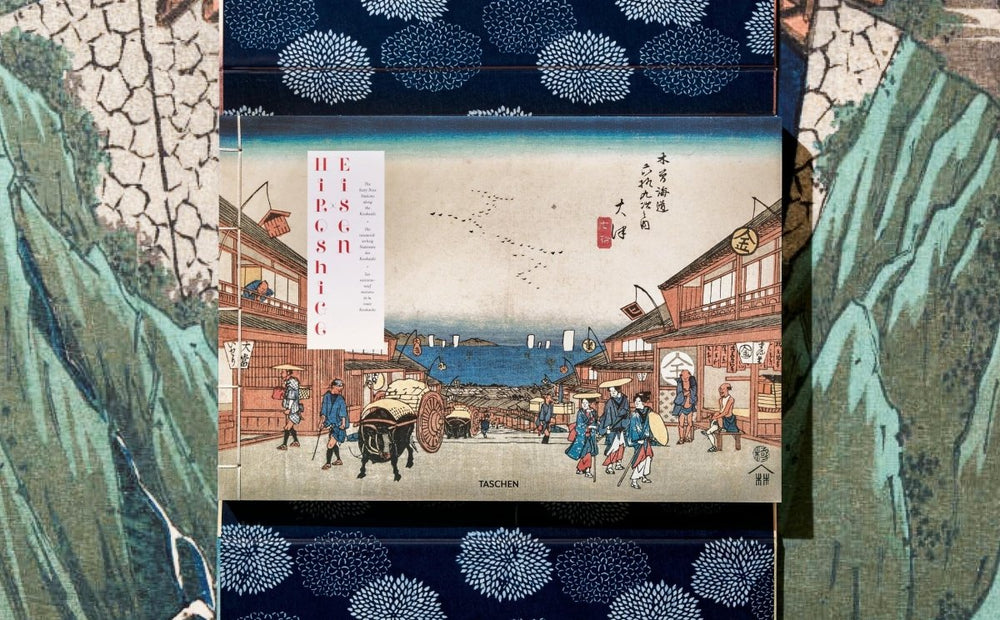 HiROShiGE
EiSEN
The
Sixty-Nine
Stations
along
the
Kisokaido
Die
neunund-
sechzig
Stationen
des
Kisokaido
Les
soixante-
neuf
stations
de la
route
Kisokaido
木曽海道
六拾九次之内
大津
金
金
大當
TASCHEN